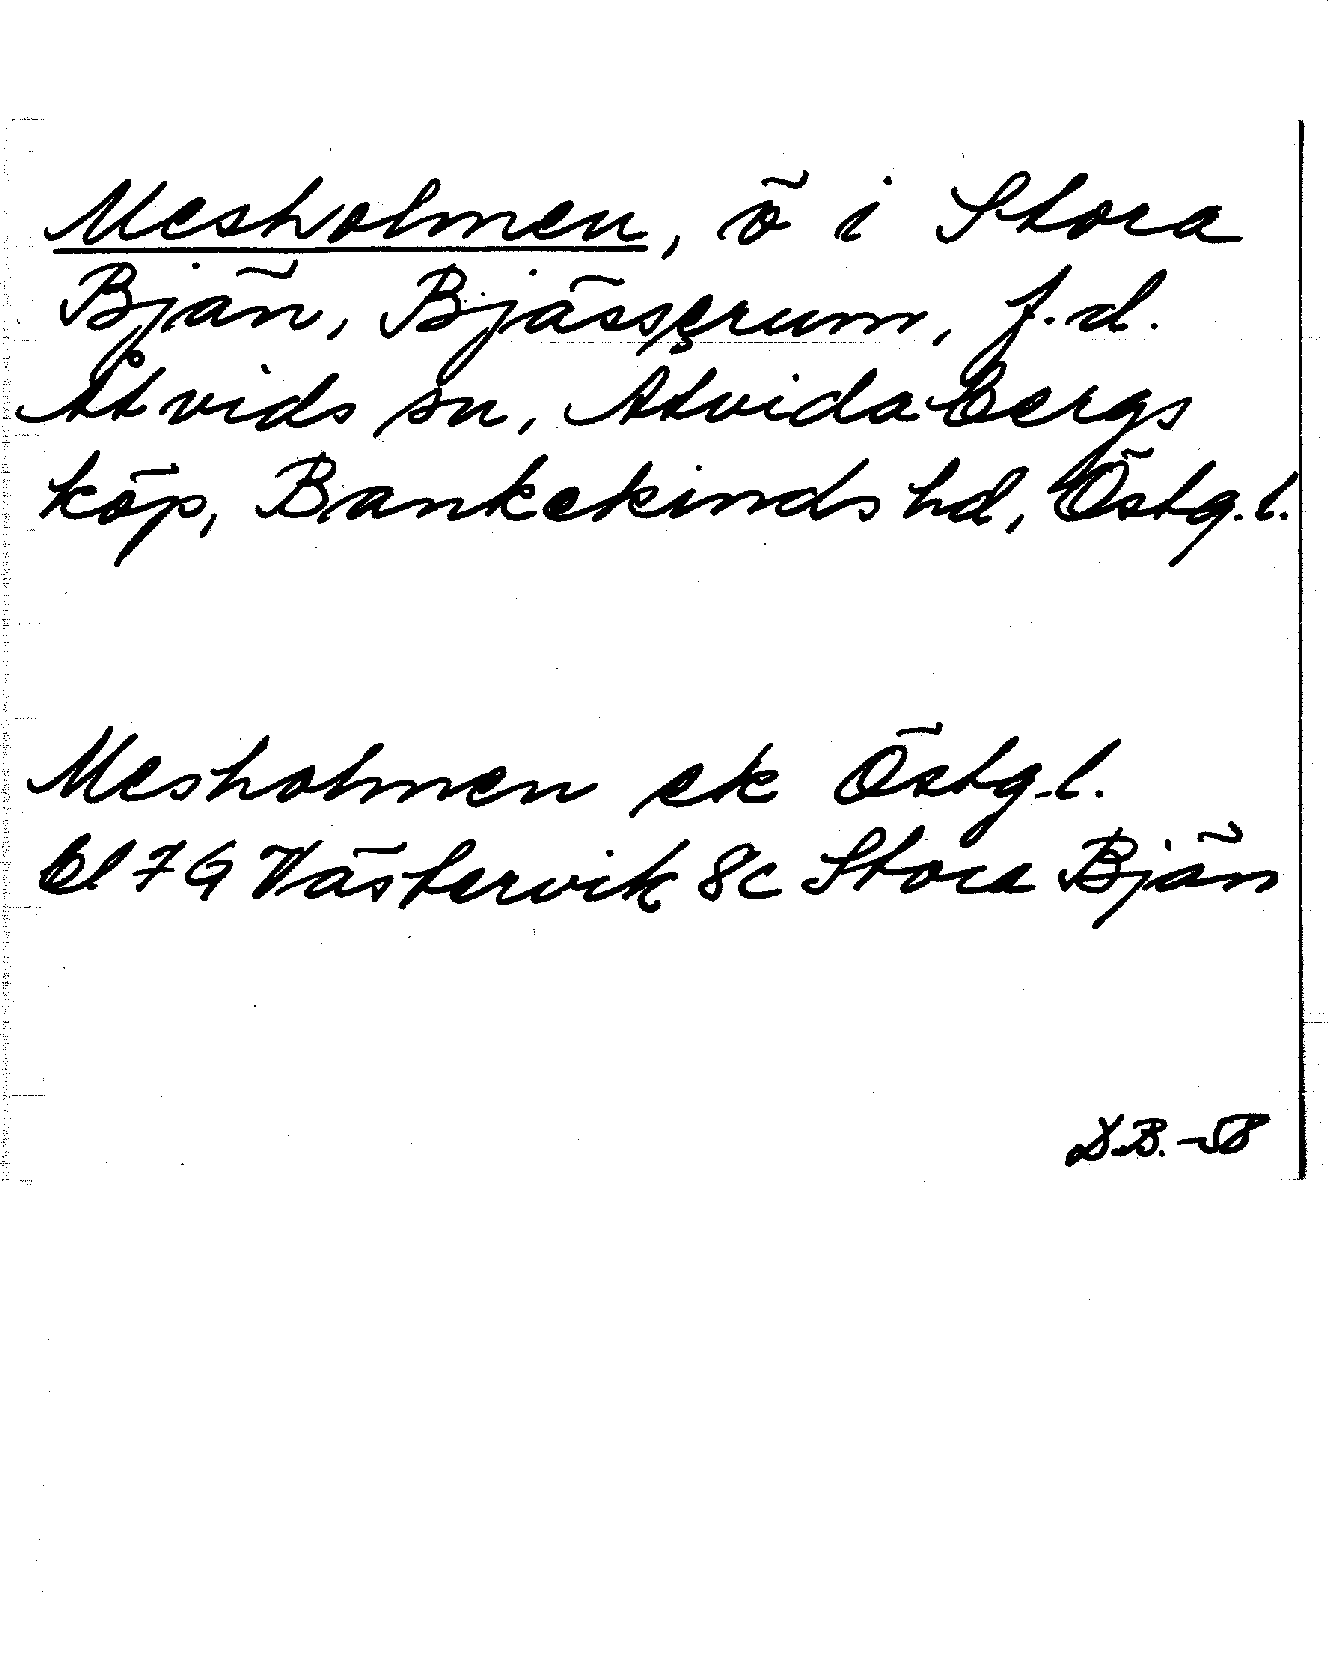 Mesholmen, ö i Stora
Bjän, Bjässerum, f.d.
Åtvids sn, Åtvidabergs
köp, Bankekinds hd, Östg.l.
Mesholmen ek Östg.l.
bl 7G Västervik 8c Stora Bjän
D.B. -58